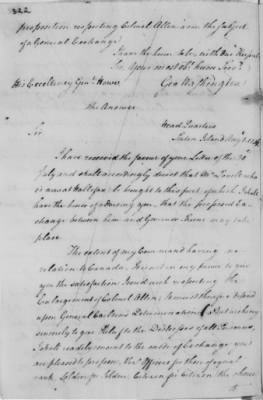 322
proposition respecting Colonel Allen, & on the Subject
of a General Exchange
I have the honor to be, with due Respect
Sir, Your most obt. hum. Servt.
Go: Washington
His Excellency Genl. Howe
the Answer
Head Quarters
Staten Island Augt. 1. 1776
Sir
I have received the favor of your Letter of the 30
July and shall accordingly direct that Mr. Lovell who
is now at Halifax be brought to this port, upon which I shall
have the honor of advising you, that the proposed Ex-
change between him and Governor Skene may take
place.
The extent of my Command having no
relation to Canada, It is not in my power to give
you the satisfaction I could wish respecting the
Enlargement of Colonel Allen, It must therefore depend
upon General Carleton's Determination. But wishing
sincerely to give Relief to the Distresses of all Prisoners,
I shall readily consent to the mode of Exchange you
are pleased to propose, Vizt. Officers for those of equal
rank Soldier for Soldier, Citizen for Citizen, the choice